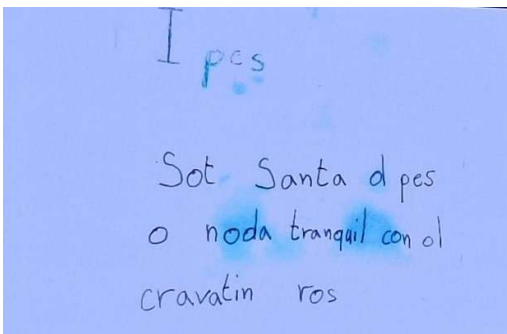 I pes
Sot Santa d pes
o noda tranquil con ol
cravatin ros